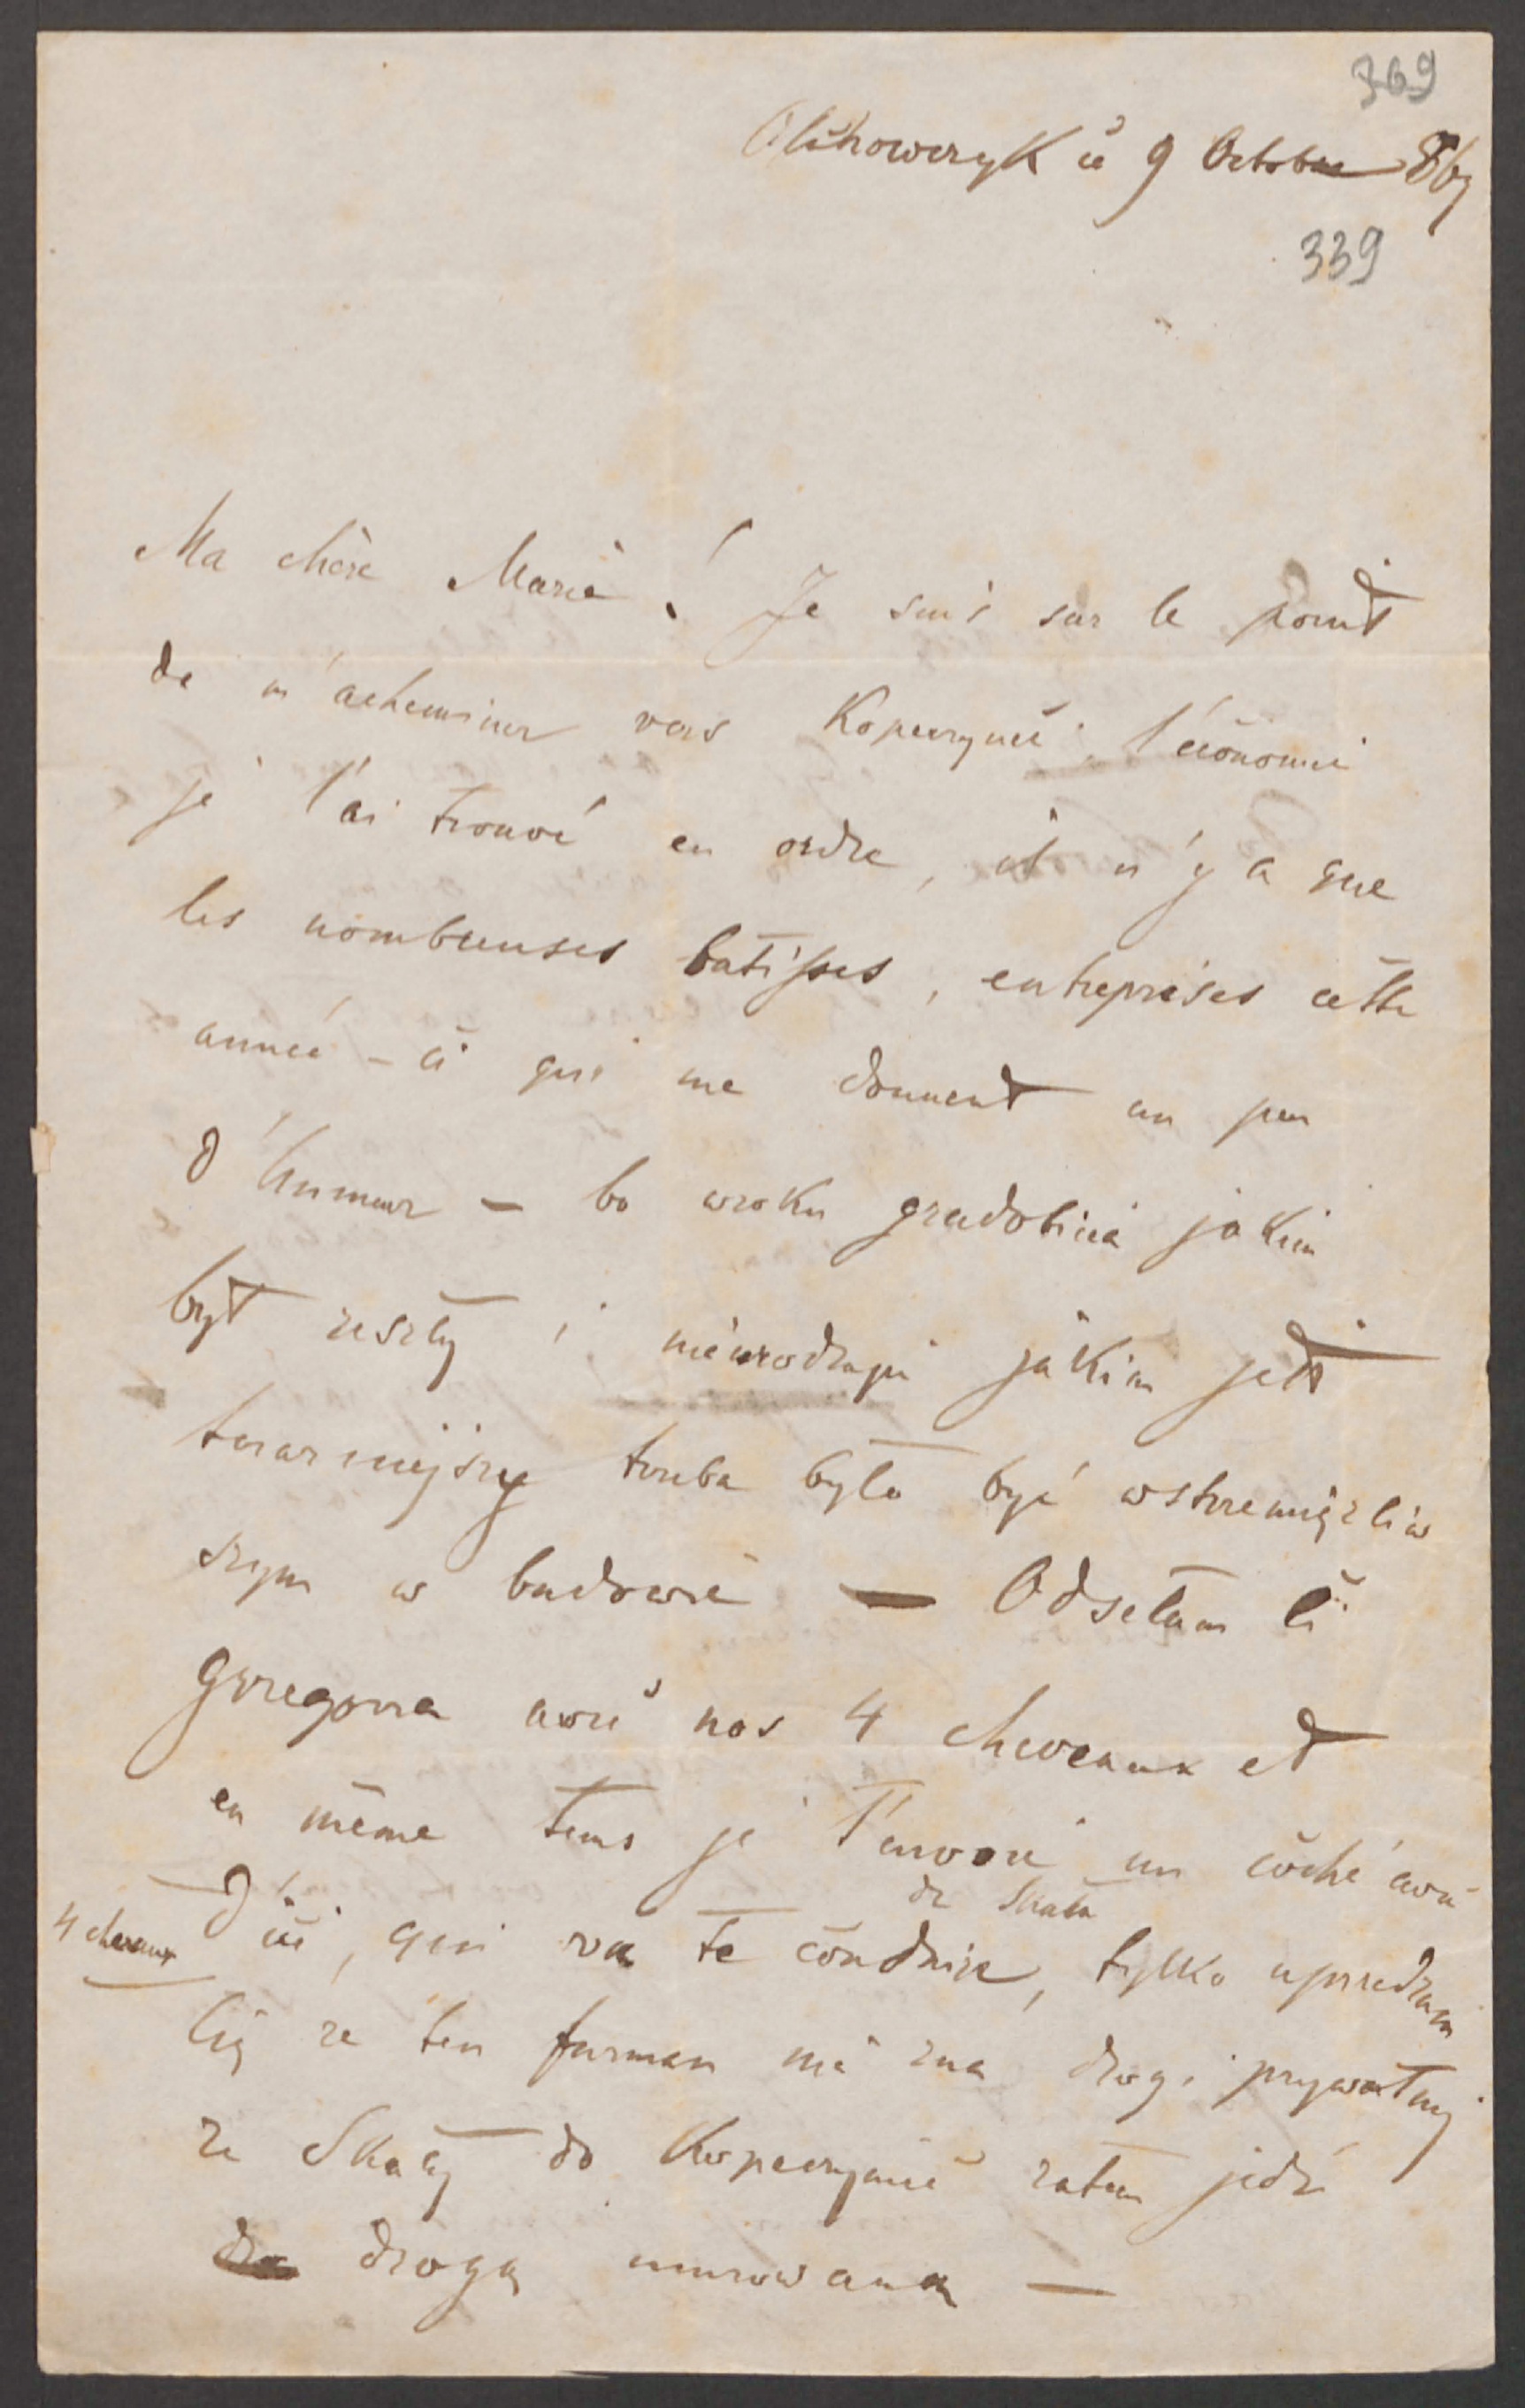 369
Olchowczyk ce 9 Octobre 867
339
Ma chère Marie! Je suis sur le point
de m'acheminer vers Kopeczyńce l'économie
je l'ai trouvé en ordre, il n'y a que
les nombreuses batisses, entreprises cette
année – ci qui me donnent un peu
d'humeur – bo w roku gradobicia jakim
był zeszły i nieurodzaju jakim jest
teraźniejszy trzeba było być wstrzemięźliw
szym w budowie — Odsełam Ci
Grzegorza avec nos 4 chevaux et
en même tems je t'envoie un coché avec
4 chevaux d'ici, qui va te conduire de Skała, tylko uprzedzam
Cię że ten furman nie zna drogi prywatnej
ze Skały do Kopeczyniec zatem jedź
drogą murowaną —